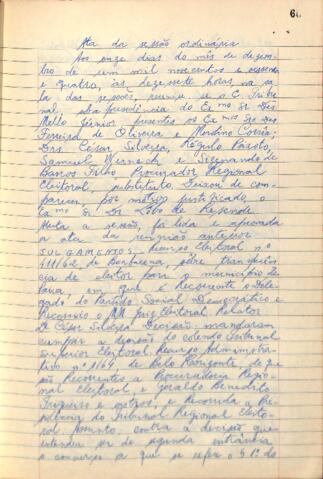 60
Ata da sessão ordinária
Aos onze dias do mês de dezem-
bro de um mil novecentos e sessenta
e quatro, às dezessete horas na sa-
la das sessões, reuniu-se o E. Tribu-
nal, sob a presidência do Exmo Sr Des
Mello Júnior presentes os Exmos Srs Des
Ferreira de Oliveira e Merolino Corrêa;
Drs César Silveira, Régulo Peixoto,
Samuel Werneck e Sizenando de
Barros Filho Procurador Regional
Eleitoral, substituto. Deixou de com-
parecer, por motivo justificado, o
Exmo Sr Dr Lobo de Rezende
Aberta a sessão, foi lida e aprovada
a ata da reunião anterior.
JULGAMENTOS: Recurso Eleitoral nº
111/62, de Barbacena, sobre transferên-
cia de eleitor para o município de
Paiva, em que é Recorrente o Dele-
gado do Partido Social Democrático e
Recorrido o MM Juiz Eleitoral Relator
Dr César Silveira Decisão: mandaram
cumprir a decisão do colendo Tribunal
Superior Eleitoral. Recurso Administra-
tivo nº 1164, de Belo Horizonte, de que
são Recorrentes a Procuradoria Regio-
nal Eleitoral e Geraldo Benedito
e outros, e Recorrida a Pre-
sidência do Tribunal Regional Eleito-
ral Assunto: contra a decisão que
entendeu ser de segunda entrância
o a que se refere o § 1º do